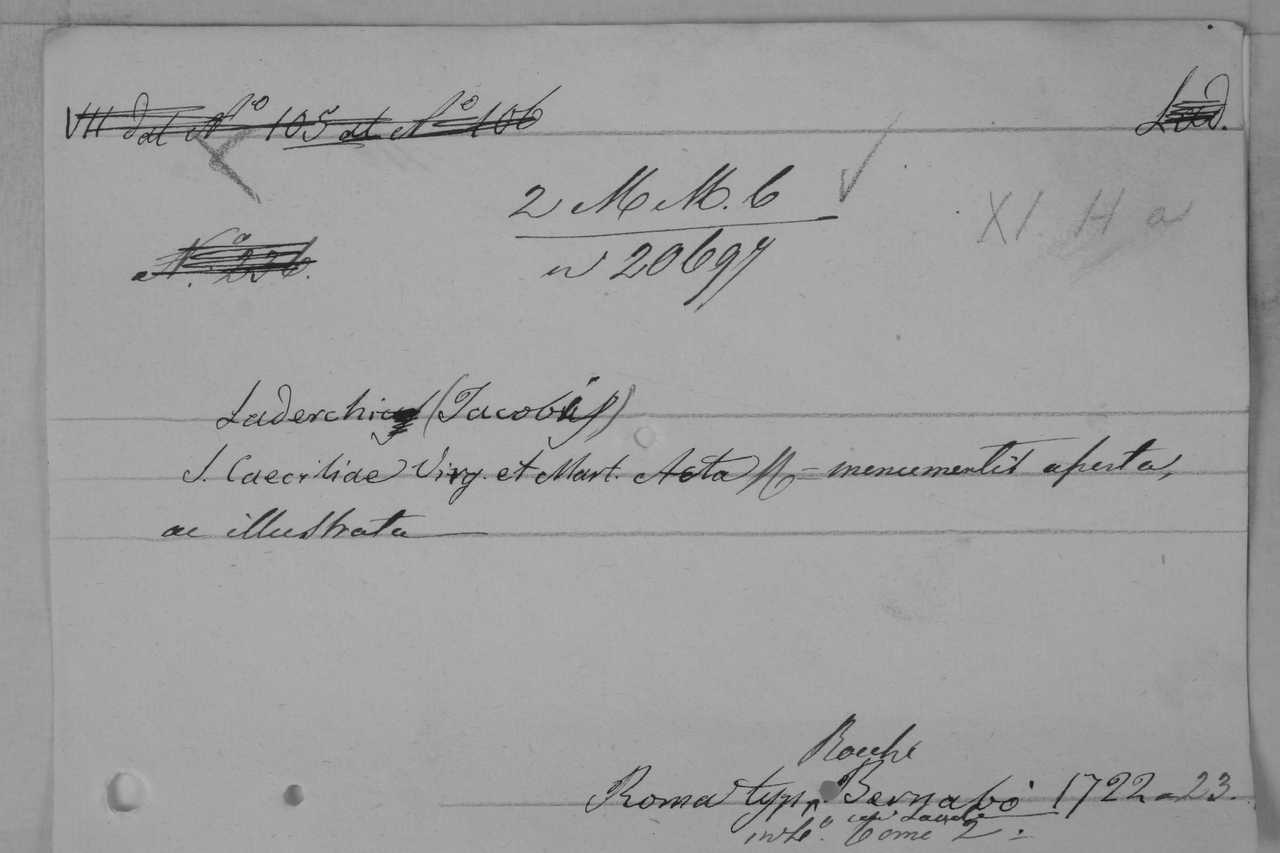 VII dal Nº 105 al Nº 106
Lad.
2 M M. 6
XI. H a
n 20697
Nº 226.
Laderchi (Jacobi)
S. Caeciliae Virg. et Mart. Acta = monumentis aperta,
ac illustrata
Rocchi
Roma typ. Bernabò 1722-23.
in 4º. tome 2.